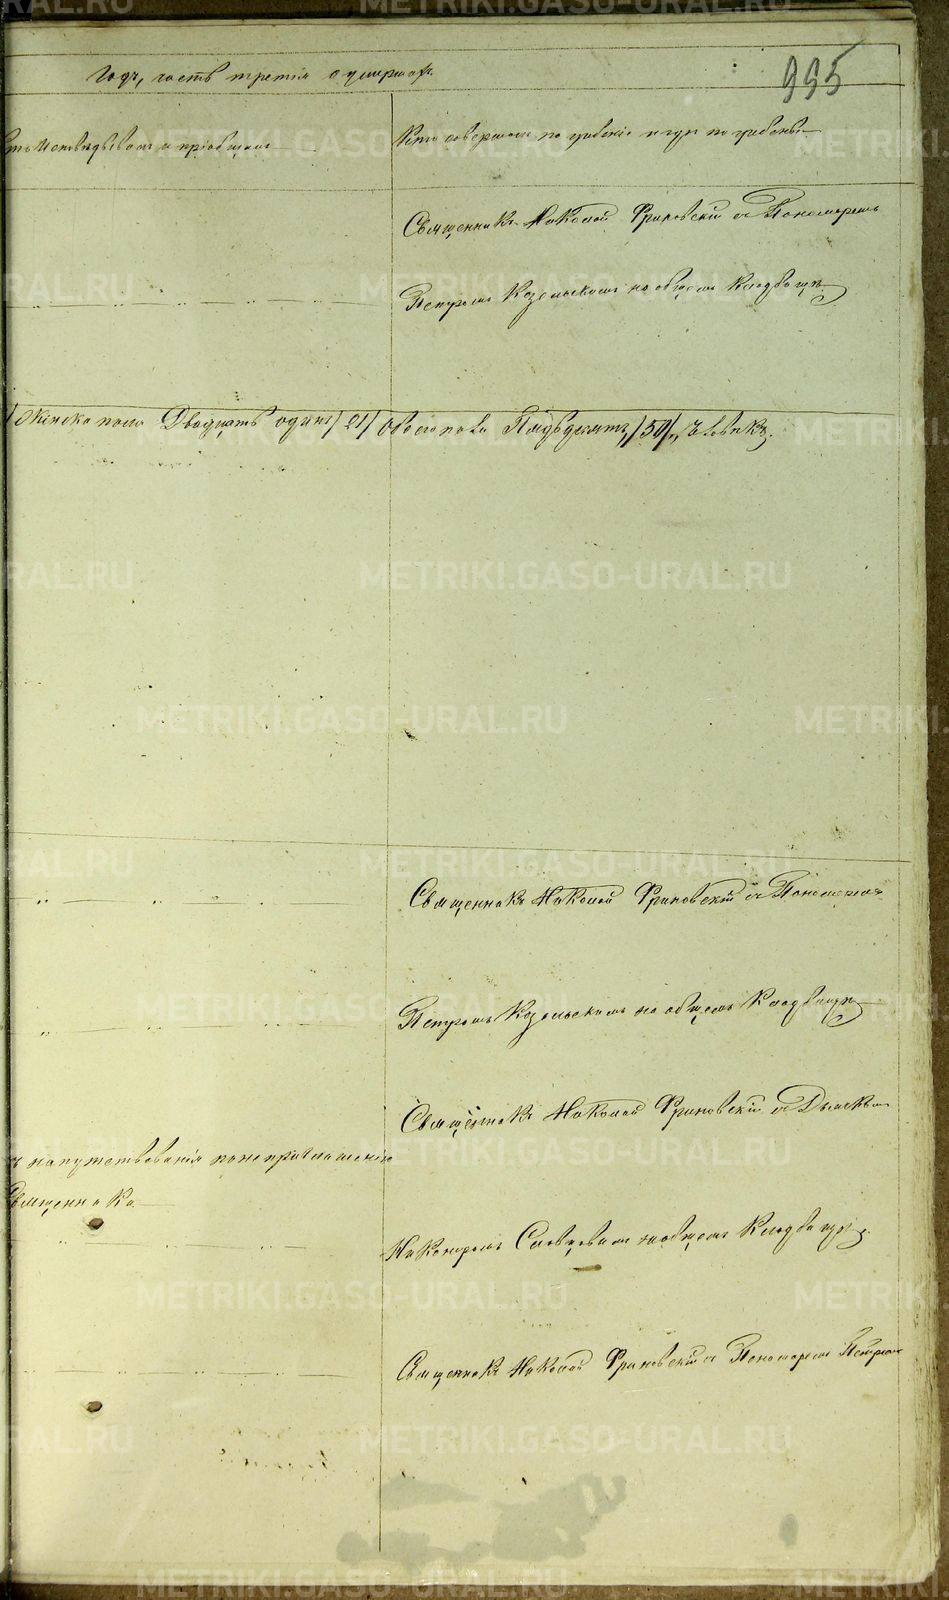 995
Годъ, часть третія о умершихъ.
Исповѣдывалъ и пріобщалъ
Кто совершалъ погребеніе и гдѣ погребены
Священникъ Николай Франовскій съ Пономаремъ
Петромъ Козельскимъ на общемъ Кладбищѣ
Женска пола Двадцать одинъ /21/ Обоего пола Пятьдесятъ /50/ Человѣкъ.
Священникъ Николай Франовскій съ Пономаремъ
Петромъ Козельскимъ на общемъ Кладбищѣ
Священникъ Николай Франовскій съ Дьячкомъ
напутствованія по не приглашенію
Священника
Словцовымъ на общемъ Кладбищѣ
Священникъ Николай Франовскій съ Пономаремъ Петромъ
METRIKI.GASO-URAL.RU